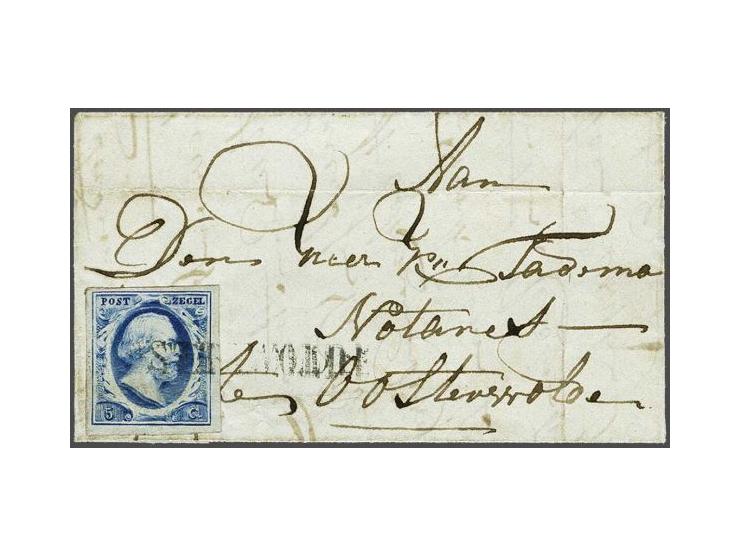 Aan
Den Heer Tadema
Notaris
te Oosterwolde
POST ZEGEL
5 C.